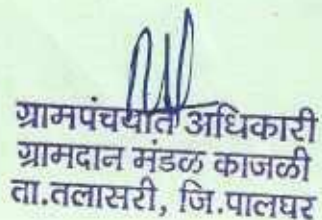 ग्रामपंचयात अधिकारी
ग्रामदान मंडळ काजळी
ता.तलासरी, जि.पालघर